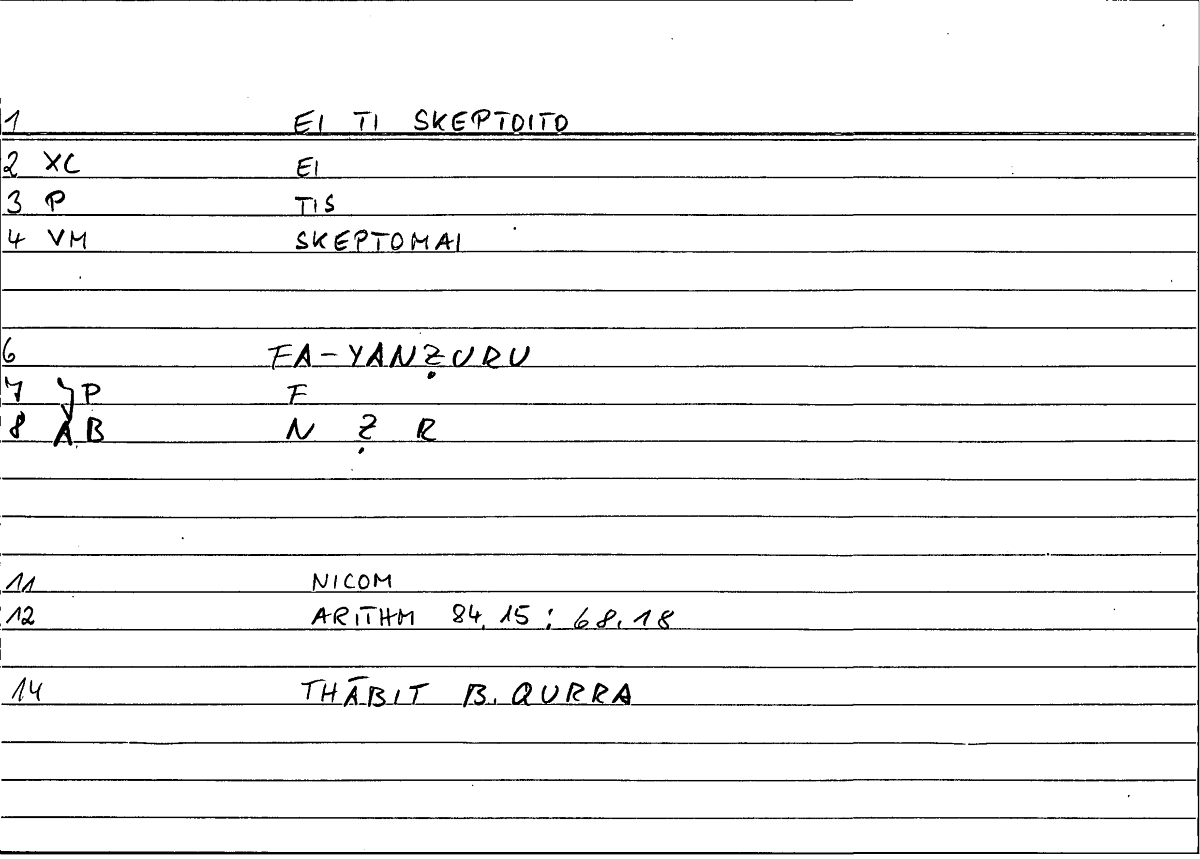 1 EI TI SKEPTOITO
2 XC EI
3 P TIS
4 VM SKEPTOMAI
6 FA-YANẒURU
7 P F
8 AB N Ẓ R
11 NICOM
12 ARITHM 84.15 : 68.18
14 THĀBIT B. QURRA